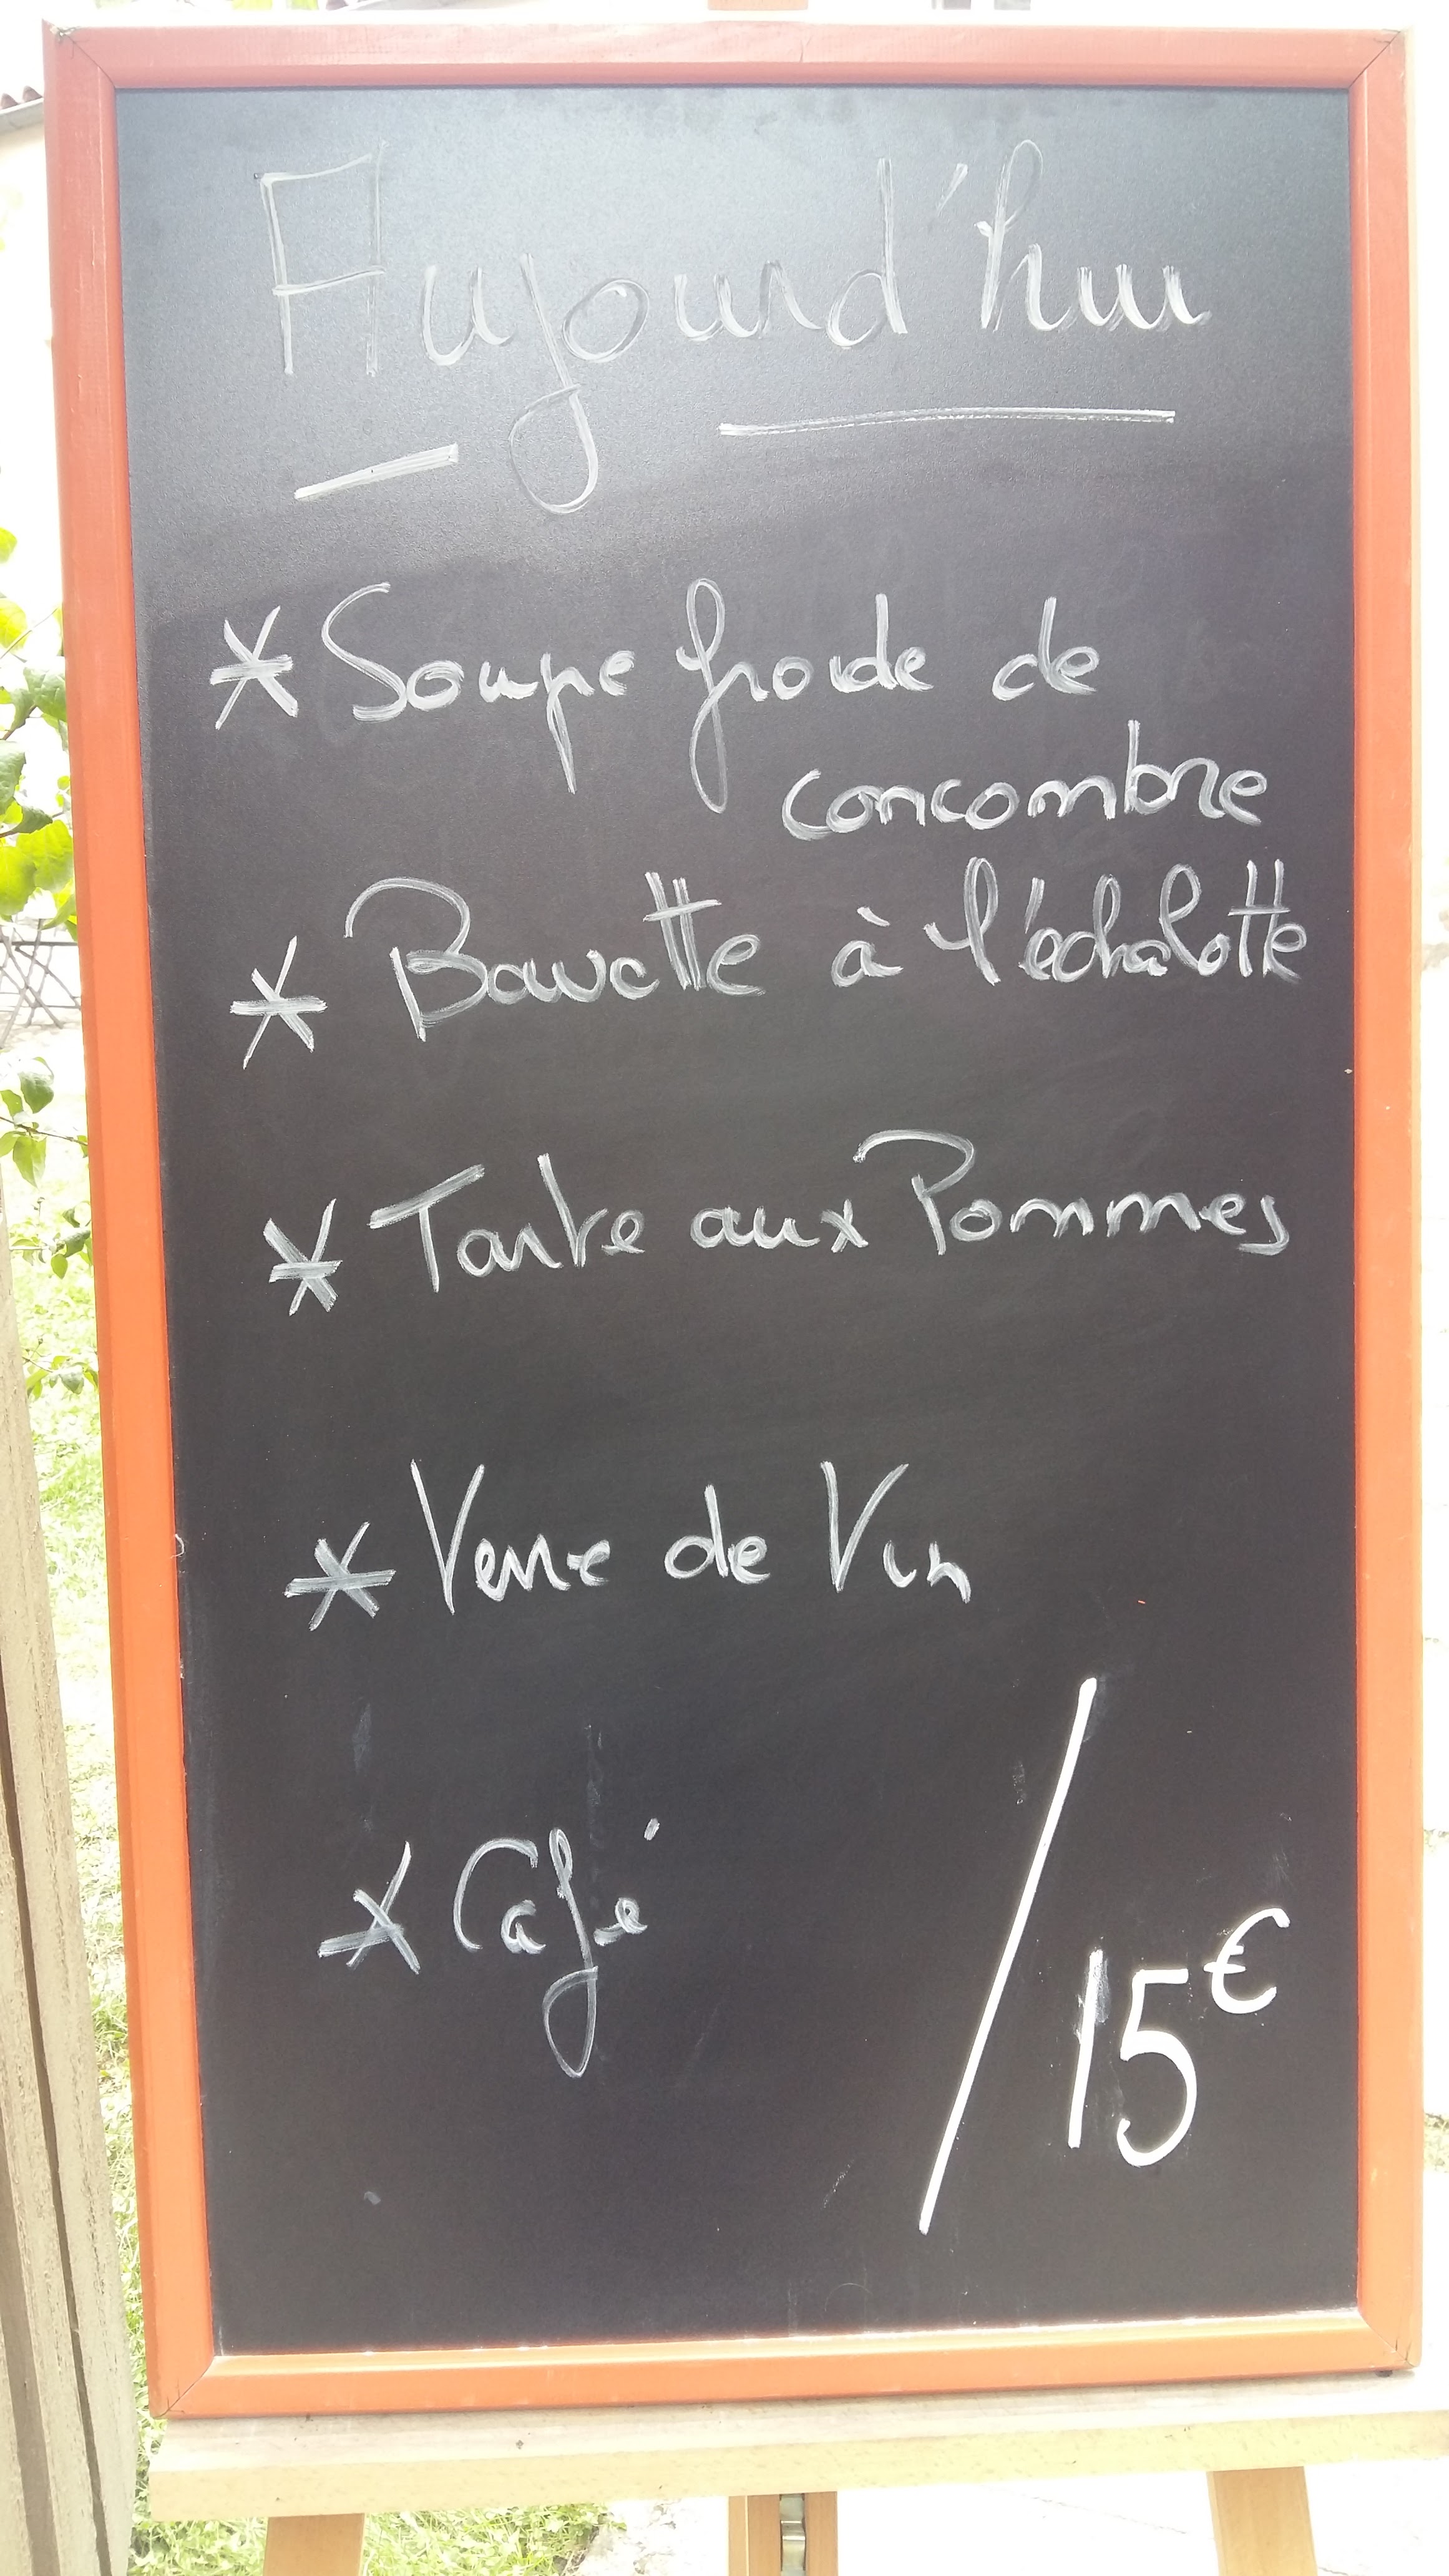 Aujourd'hui
* Soupe froide de
concombre
* Bavette à l'échalotte
* Tarte aux Pommes
* Verre de Vin
* Café
/ 15€